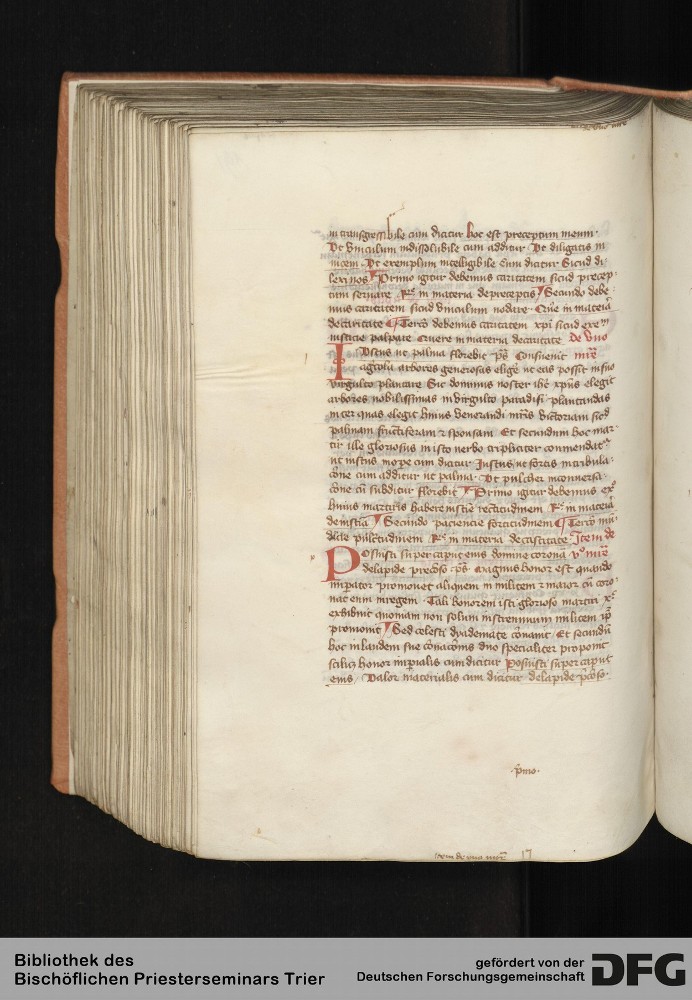 intransgressibile cum dicitur hoc est preceptum meum.
Vt vinculum indissolubile cum additur. Vt diligatis in
uicem. Vt exemplum intelligibile Cum dicitur Sicud di
lexi nos Primo igitur debemus caritatem sicud precep
tum seruare. Re in materia de preceptis Secundo debe
mus caritatem sicud vinculum nodare. Que in materia
de caritate Tercio debemus caritatem xpi sicud exem
iusticie palpare Quere in materia de caritate De vno
Iustus ut palma florebit ps Consueuit mre
agricola arbores generosas elige ut eas possit in suo
virgulto plantare Sic dominus noster ihc xpus elegit
arbores nobilissimas in virgulto paradisi plantandas
inter quas elegit huius venerandi mris victoriam sicd
palmam fructiferam et sponsam. Et secundum hoc mar
tir ille gloriosus in isto uerbo tripliciter commendatr
ut iustus cum dicitur Iustus ut fortis in tribula
cone cum additur ut palma. Vt pulcher in conuersa
cone cu subditur florebit Primo igitur debemus exo
huius martiris habere iusticie rectitudinem Re in materia
de iusticia Secundo paciencie fortitudinem Tercio mu
dicie pulcritudinem Re in materia de castitate Item de
Posuisti super caput eius domine corona vo mre
de lapide precioso ps Magnus honor est quando
inperator promouet aliquem in militem et maior cu coro
nat eum in regem. Tali honorem isti glorioso martiri xc
exhibuit quoniam non solum in strennuum militem ip
promouit Sed celesti dyademate coronauit Et secundu
hoc in laudem sue coronacionis duo specialiter proponit
scilicet honor inperialis cum dicitur Posuisti super caput
eius Valor materialis cum dicitur de lapide precioso.
.primo.
Item de uno mre 17
Bibliothek des
Bischöflichen Priesterseminars Trier
gefördert von der
Deutschen Forschungsgemeinschaft
DFG